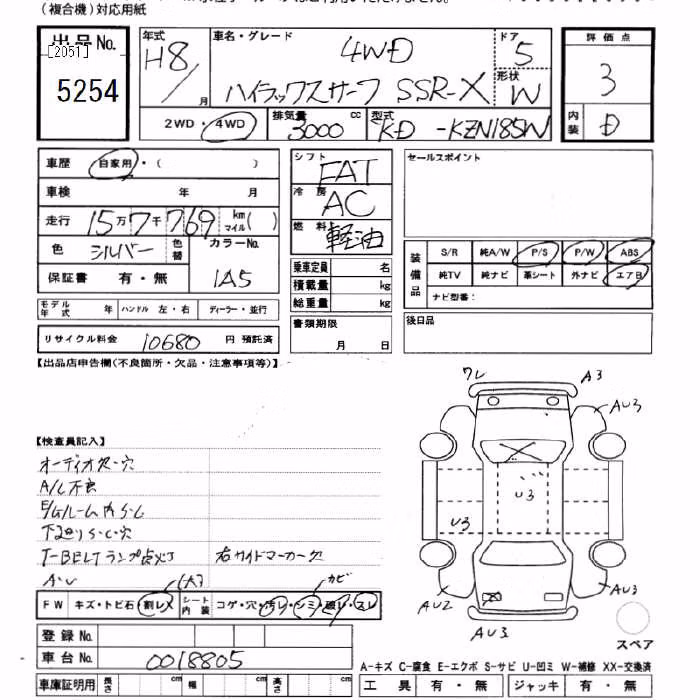 (複合機)対応用紙
出品No.
[2051]
5254
年式
H8/
月
車名・グレード
4WD
ハイラックスサーフ SSR-X
ドア
5
形状
W
2WD・4WD
排気量
3000
cc
型式
KD-KZN185W
評価点
3
内装
D
車歴 自家用・( )
車検 年 月
走行 15万7千769 km マイル( )
色 シルバー 色替 カラーNo.
保証書 有・無 1A5
モデル年式 年 ハンドル 左・右 ディーラー・並行
リサイクル料金 10680 円 預託済
シフト FAT
冷房 AC
燃料 軽油
乗車定員 名
積載量 kg
総重量 kg
書類期限
月 日
セールスポイント
装備品
S/R 純A/W P/S P/W ABS
純TV 純ナビ 革シート 外ナビ エアB
ナビ型番:
後日品
【出品店申告欄(不良箇所・欠品・注意事項等)】
【検査員記入】
オーディオ欠・穴
A/C不良
E/Gルーム内S・C
下廻りS・C・穴
T-BELTランプ点灯 右サイドマーカー欠
A・U
(大)
カビ
FW キズ・トビ石 割レX シート内装 コゲ・穴・汚レ・シミ・破レ・スレ
登録No.
車台No. 0018805
車庫証明用 長さ cm 幅 cm 高さ cm
ワレ
A3
AU3
U3
U3
AU2
AU3
AU3
スペア
A-キズ C-腐食 E-エクボ S-サビ U-凹ミ W-補修 XX-交換済
工具 有・無 ジャッキ 有・無